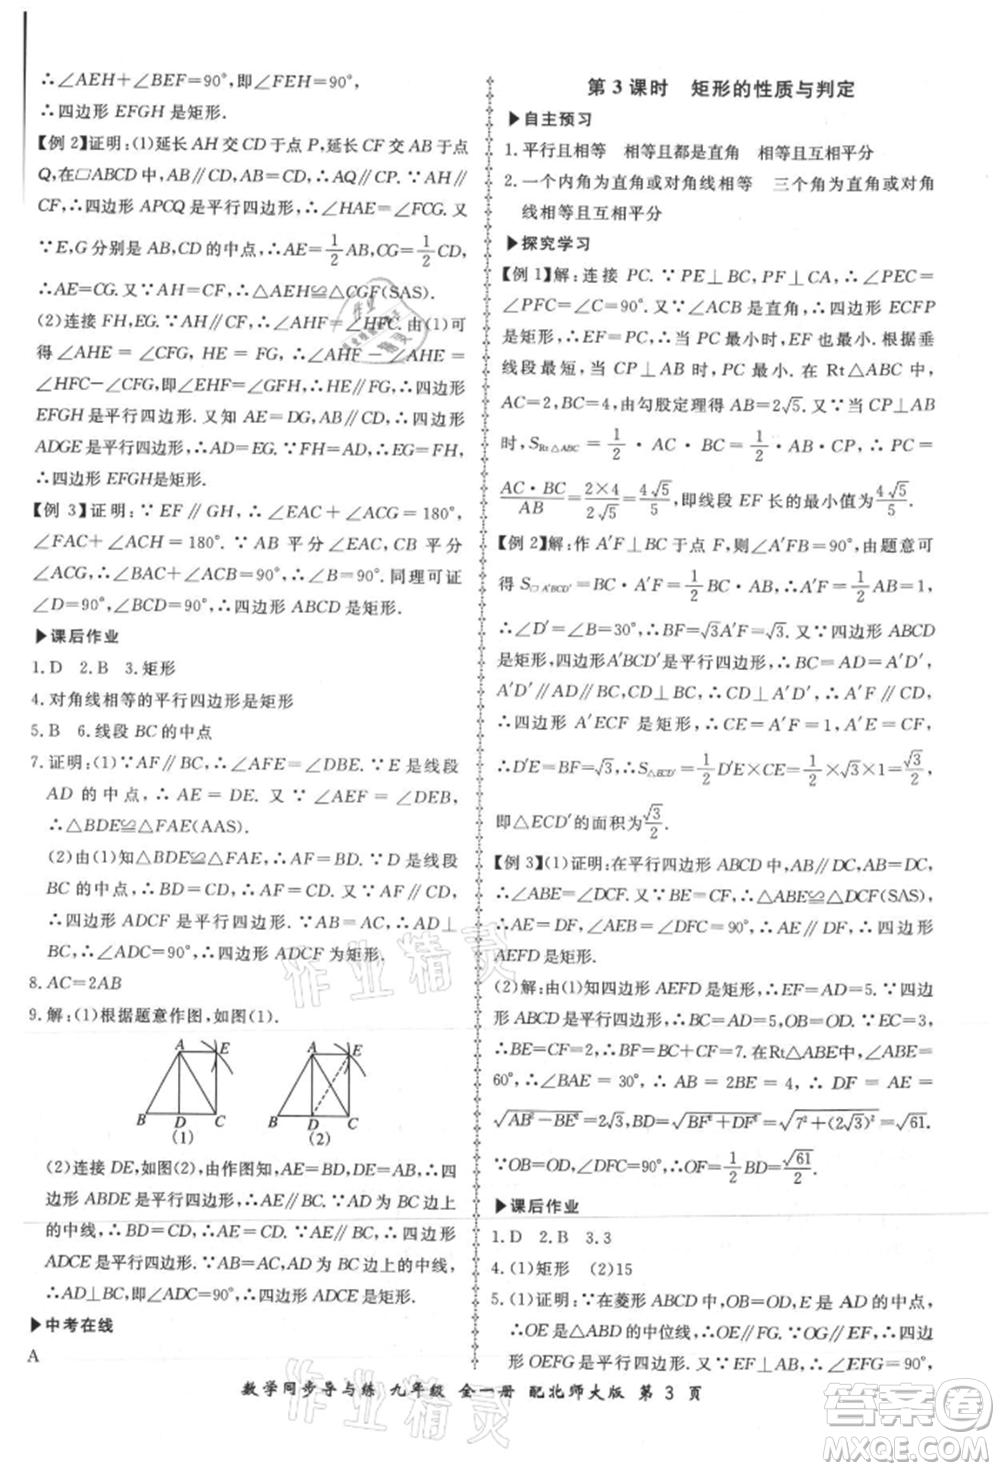 ∴∠AEH+∠BEF=90°,即∠FEH=90°,
∴四边形 EFGH 是矩形.
【例 2】证明:(1)延长 AH 交 CD 于点 P,延长 CF 交 AB 于点
Q,在▱ABCD 中,∴AQ∥PC. 又∵AH∥CF,
∴四边形 APCQ 是平行四边形,∴∠HAE=∠FCG. 又
∵E,G 分别是 AB,CD 的中点,∴AE=1/2AB,CG=1/2CD,
∴AE=CG. 又∵AH=CF,∴△AEH≌△CGF(SAS).
(2)连接 FH,EG. ∵AH∥CF,∴∠AHF=∠HFC. 由(1)可
得∠AHE=∠CFG,∴∠AHF-∠AHE=∠HFC-
∠CFG,即∠EHF=∠GFH,∴EH∥GF,∴四边形
EFGH 是平行四边形. 又知 AE=DG,AB∥CD,∴四边形
ADGE 是平行四边形,∴AD=EG. ∵AD=FH,∴EG=FH,
∴四边形 EFGH是矩形.
【例 3】证明:∵EF∥GH,∴∠EAC+∠ACG=180°,
∠FAC+∠ACH=180°. ∵AB 平分∠EAC,CB 平分
∠ACG,∴∠BAC+∠ACB=90°,∴∠B=90°. 同理可证
∠D=90°,∠BCD=90°,∴四边形 ABCD 是矩形.
▶课后作业
1. D 2. B 3. 矩形
4. 对角线相等的平行四边形是矩形
5. B 6. 线段 BC 的中点
7. 证明:(1)∵AF∥BC,∴∠AFE=∠DBE. ∵E 是线段
AD 的中点,∴AE=DE. 又∵∠AEF=∠DEB,
∴△BDE≌△FAE(AAS).
(2)由(1)知△BDE≌△FAE,∴AF=BD. ∵D 是线段
BC 的中点,∴BD=CD,∴AF=CD. 又∵AF∥CD,
∴四边形 ADCF 是平行四边形. ∵AB=AC,∴AD⊥
BC,∴∠ADC=90°,∴四边形 ADCF 为矩形.
8. AC=2AB
9. 解:(1)根据题意作图,如图(1).
A E A E
B D C B D C
(1) (2)
(2)连接 DE,如图(2),由作图知,AE=BD,∴四
边形 ABDE 是平行四边形,∴AE∥BC. ∵AD 是△ABC
的中线,∴BD=CD,∴AE=CD. ∴四边形
ADCE 是平行四边形. ∵AB=AC,AD 是△ABC的中线,
∴AD⊥BC,即∠ADC=90°,∴四边形 ADCE 是矩形.
▶中考在线
A
第 3 课时 矩形的性质与判定
▶自主预习
1. 平行且相等 相等且都是直角 相等且互相平分
2. 一个内角为直角或对角线相等 三个角为直角或对角
线相等且互相平分
▶探究学习
【例 1】解:连接 PC. ∵PE⊥BC,PF⊥CA,∴∠PEC=
∠PFC=∠C=90°. 又∵∠ACB 是直角,∴四边形 ECFP
是矩形,∴EF=PC,∴当 PC 最小时,EF 也最小,根据垂
线段最短,当 CP⊥AB 时,PC 最小. 在 Rt△ABC 中,
AC=2,BC=4,由勾股定理得 AB=2√5. 又∵当 CP⊥AB
时,S Rt△ABC=1/2·AC·BC=1/2·AB·CP,∴PC=
AC·BC/AB=2×4/2√5=4√5/5,即线段 EF 长的最小值为4√5/5.
【例 2】解:作 A′F⊥BC 于点 F,则∠A′FB=90°,由题意可
得 S▱A′BCD′=BC·A′F=1/2BC·AB,∴A′F=1/2AB=1,
∴∠D′=∠B=30°,∴BF=√3A′F=√3. 又∵四边形 ABCD
是矩形,∴BC=AD=A′D′,
A′D′∥AD∥BC,CD⊥BC,∴A′F∥CD,
∴四边形 A′ECF 是矩形,∴CE=A′F=1,A′E=CF,
∴D′E=BF=√3,∴S△ECD′=1/2D′E·CE=1/2×√3×1=√3/2,
即△ECD′的面积为√3/2.
【例 3】(1)证明:在平行四边形 ABCD 中,∵AB=DC,
∴∠ABE=∠DCF. ∵BE=CF,∴△ABE≌△DCF(SAS),
∴AE=DF,∠AEB=∠DFC=90°,∴AE∥DF,∴四边形
AEFD 是矩形.
(2)解:由(1)知四边形 AEFD 是矩形,∴EF=AD=5. ∵四边形
ABCD 是平行四边形,∴OB=OD. ∵EC=3,∴BE=CF=2,
∴BF=BC+CF=7. 在Rt△ABE 中,∠ABE=
60°,∴∠BAE=30°,∴AB=2BE=4,∴DF=AE=
√(AB²-BE²)=2√3,∴BD=√(BF²+DF²)=√(7²+(2√3)²)=√61.
∵OB=OD,∠DFC=90°,∴OF=1/2BD=√61/2.
▶课后作业
1. D 2. B 3. 3
4. (1)矩形 (2)15
5. (1)证明:∵在菱形 ABCD 中,OB=OD,E 是 AD 的中点,
∴OE 是△ABD 的中位线,∴OE∥FG. ∵OG∥EF,∴四边
形 OEFG 是平行四边形. ∵EF⊥AB,∴∠EFG=90°,
数学同步导与练 九年级 全一册 配北师大版 第 3 页
作业精灵
作业精灵
答案圈
MXQE.COM